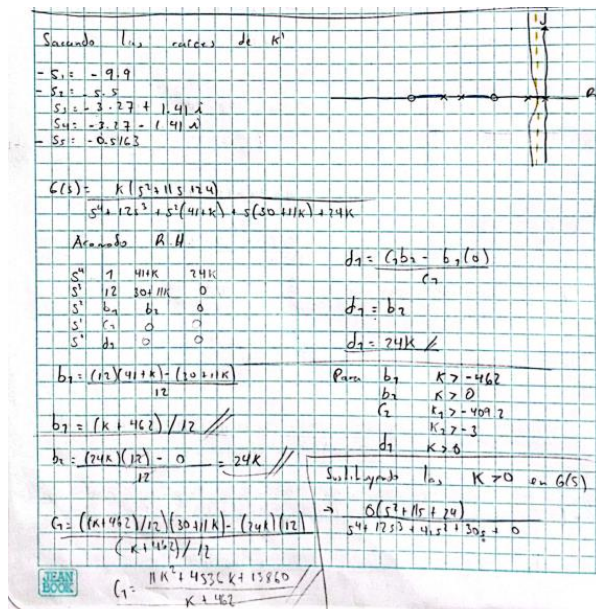 Sacando las raices de K'
- S₁: -9.9
- S₂: -5.5
S₃: -3.27 + 1.41 i
S₄: -3.27 - 1.41 i
- S₅: -0.5163
G(s) = K(s²+11s+24)
s⁴+12s³+s²(41+K)+s(30+11K)+24K
R H
s⁴ 1 41+K 24K
s³ 12 30+11K 0
s² b₁ b₂ 0
s¹ C₁ 0 0
s⁰ d₁ 0 0
b₁ = (12)(41+K)-(30+11K)
12
b₁ = (K+462)/12
b₂ = (24K)(12) - 0 = 24K
12
C₁ = ((K+462)/12)(30+11K) - (24K)(12)
(K+462)/12
C₁ = 11K²+4536K+13860
K+462
d₁ = C₁b₂ - b₁(0)
C₁
d₁ = b₂
d₁ = 24K
Para b₁ K > -462
b₂ K > 0
C₁ K₁ > -409.2
K₂ > -3
d₁ K > 0
Sustituyendo las K > 0 en G(s)
→ 0(s²+11s+24)
s⁴+12s³+41s²+30s+0
JEAN
BOOK